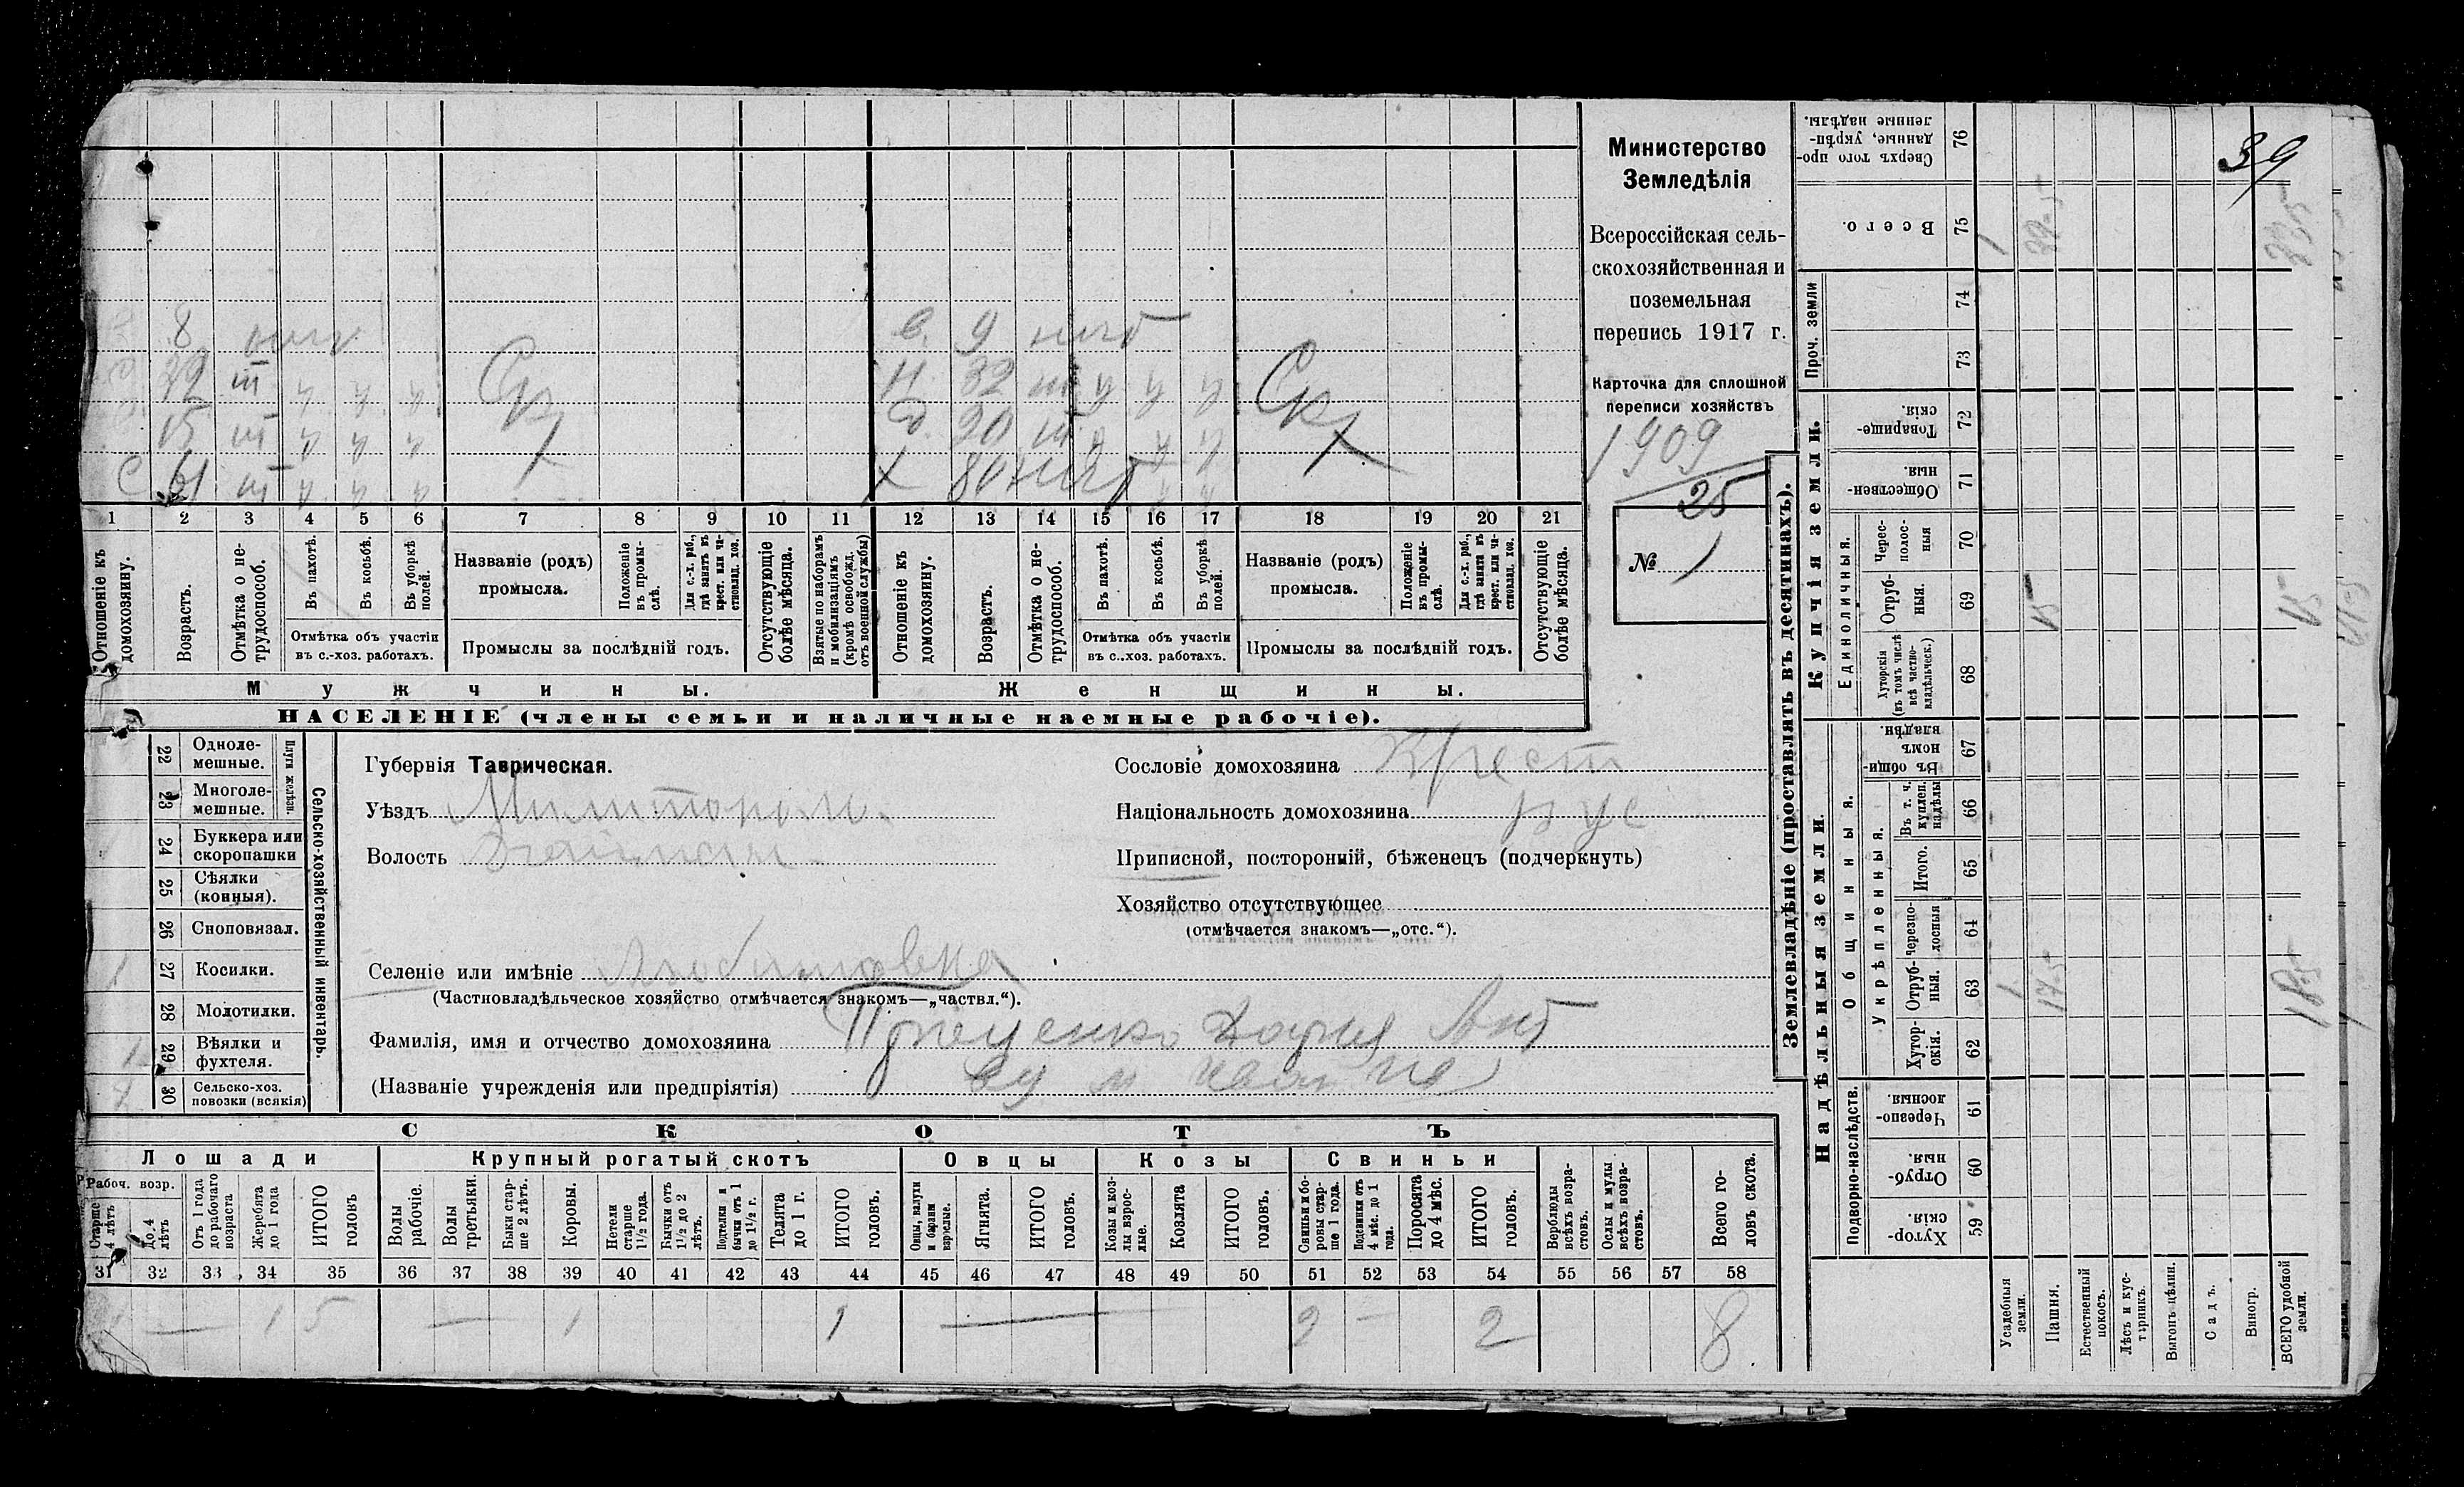 8
в. 9
32 ш ч ч ч Ск
Н. 32 ш ч ч ч Ск
15 ш ч ч ч
д. 20 ш ч ч ч
С 61 ш ч ч ч
Х 80
1 2 3 4 5 6 7 8 9 10 11 12 13 14 15 16 17 18 19 20 21
Отношеніе къ домохозяину.
Возрастъ.
Отмѣтка о не-трудоспособ.
Въ пахотѣ.
Въ косьбѣ.
Въ уборкѣ полей.
Отмѣтка объ участіи
въ с.-хоз. работахъ.
Названіе (родъ)
промысла.
Положеніе въ промы-слѣ.
Для с.-х. раб., гдѣ занятъ въ крест. или ча-стновлад. хоз.
Промыслы за послѣдній годъ.
Отсутствующіе болѣе мѣсяца.
Взятые по наборамъ и мобилизаціямъ (кромѣ освобожд. отъ военной службы)
Отношеніе къ домохозяину.
Возрастъ.
Отмѣтка о не-трудоспособ.
Въ пахотѣ.
Въ косьбѣ.
Въ уборкѣ полей.
Отмѣтка объ участіи
въ с..хоз. работахъ.
Названіе (родъ)
промысла.
Положеніе въ промы-слѣ.
Для с.-х. раб., гдѣ занята въ крест. или ча-стновлад. хоз.
Промыслы за послѣдній годъ.
Отсутствующіе болѣе мѣсяца.
Мужчины.
Женщины.
НАСЕЛЕНІЕ (члены семьи и наличные наемные рабочіе).
Министерство
Земледѣлія
Всероссійская сель-
скохозяйственная и
поземельная
перепись 1917 г.
Карточка для сплошной
переписи хозяйствъ
1909
25
№ 1
Сельско-хозяйственный инвентарь.
Плуги желѣзн.
22 Одноле-мешные.
23 Многоле-мешные.
24 Буккера или скоропашки
25 Сѣялки (конныя).
26 Сноповязал.
1 27 Косилки.
28 Молотилки.
1 29 Вѣялки и фухтеля.
30 Сельско-хоз. повозки (всякія)
Губернія Таврическая.
Уѣздъ
Волость
Селеніе или имѣніе Любимовка
(Частновладѣльческое хозяйство отмѣчается знакомъ—„частвл.“).
Фамилія, имя и отчество домохозяина Проценко Дарья Ант
(Названіе учрежденія или предпріятія)
Сословіе домохозяина Крест
Національность домохозяина рус
Приписной, посторонній, бѣженецъ (подчеркнуть)
Хозяйство отсутствующее
(отмѣчается знакомъ—„отс.“).
СКОТЪ
Лошади
Крупный рогатый скотъ
Овцы
Козы
Свиньи
Рабоч. возр.
Старше 4 лѣтъ
До 4 лѣтъ
Отъ 1 года до рабочаго возраста
Жеребята до 1 года
ИТОГО головъ
Волы рабочіе.
Волы третьяки.
Быки стар-ше 2 лѣтъ.
Коровы.
Нетели старше 1½ года.
Бычки отъ 1½ до 2 лѣтъ.
Подтелки и бычки отъ 1 до 1½ г.
Телята до 1 г.
ИТОГО головъ.
Овцы, валухи и бараны взрослые.
Ягнята.
ИТОГО головъ.
Козы и коз-лы взрос-лые.
Козлята
ИТОГО головъ.
Свиньи и бо-ровы стар-ше 1 года.
Подсвинки отъ 4 мѣс. до 1 года.
Поросята до 4 мѣс.
ИТОГО головъ.
Верблюды всѣхъ возра-стовъ.
Ослы и мулы всѣхъ возра-стовъ.
Всего го-ловъ скота.
31 32 33 34 35 36 37 38 39 40 41 42 43 44 45 46 47 48 49 50 51 52 53 54 55 56 57 58
— 1 5 — 1 1 — 2 — 2 8
Землевладѣніе (проставлять въ десятинахъ).
Купчія земли.
Надѣльныя земли.
Сверхъ того про-данные, укрѣп-ленные надѣлы. 76
Всего. 75 1
Проч. земли 74 73
Товарище-скія. 72
Обществен-ныя. 71
Единоличныя.
Черес-полос-ныя 70
Отруб-ныя. 69 15 15
Хуторскія (въ томъ числѣ всѣ частно-владѣльческ.) 68
Общинныя.
Въ общин-номъ владѣн. 67
Укрѣпленныя.
Въ т. ч. куплен. надѣлы 66
Итого. 65
Черезпо-лосныя 64
Отруб-ныя. 63 1 175 185
Хутор-скія. 62
Подворно-наслѣдств.
Черезпо-лосныя. 61
Отруб-ныя. 60
Хутор-скія. 59
Усадебныя земли.
Пашня.
Естественный покосъ.
Лѣсъ и кус-тарникъ.
Выгонъ цѣлин.
Садъ.
Виногр.
ВСЕГО удобной земли.
39